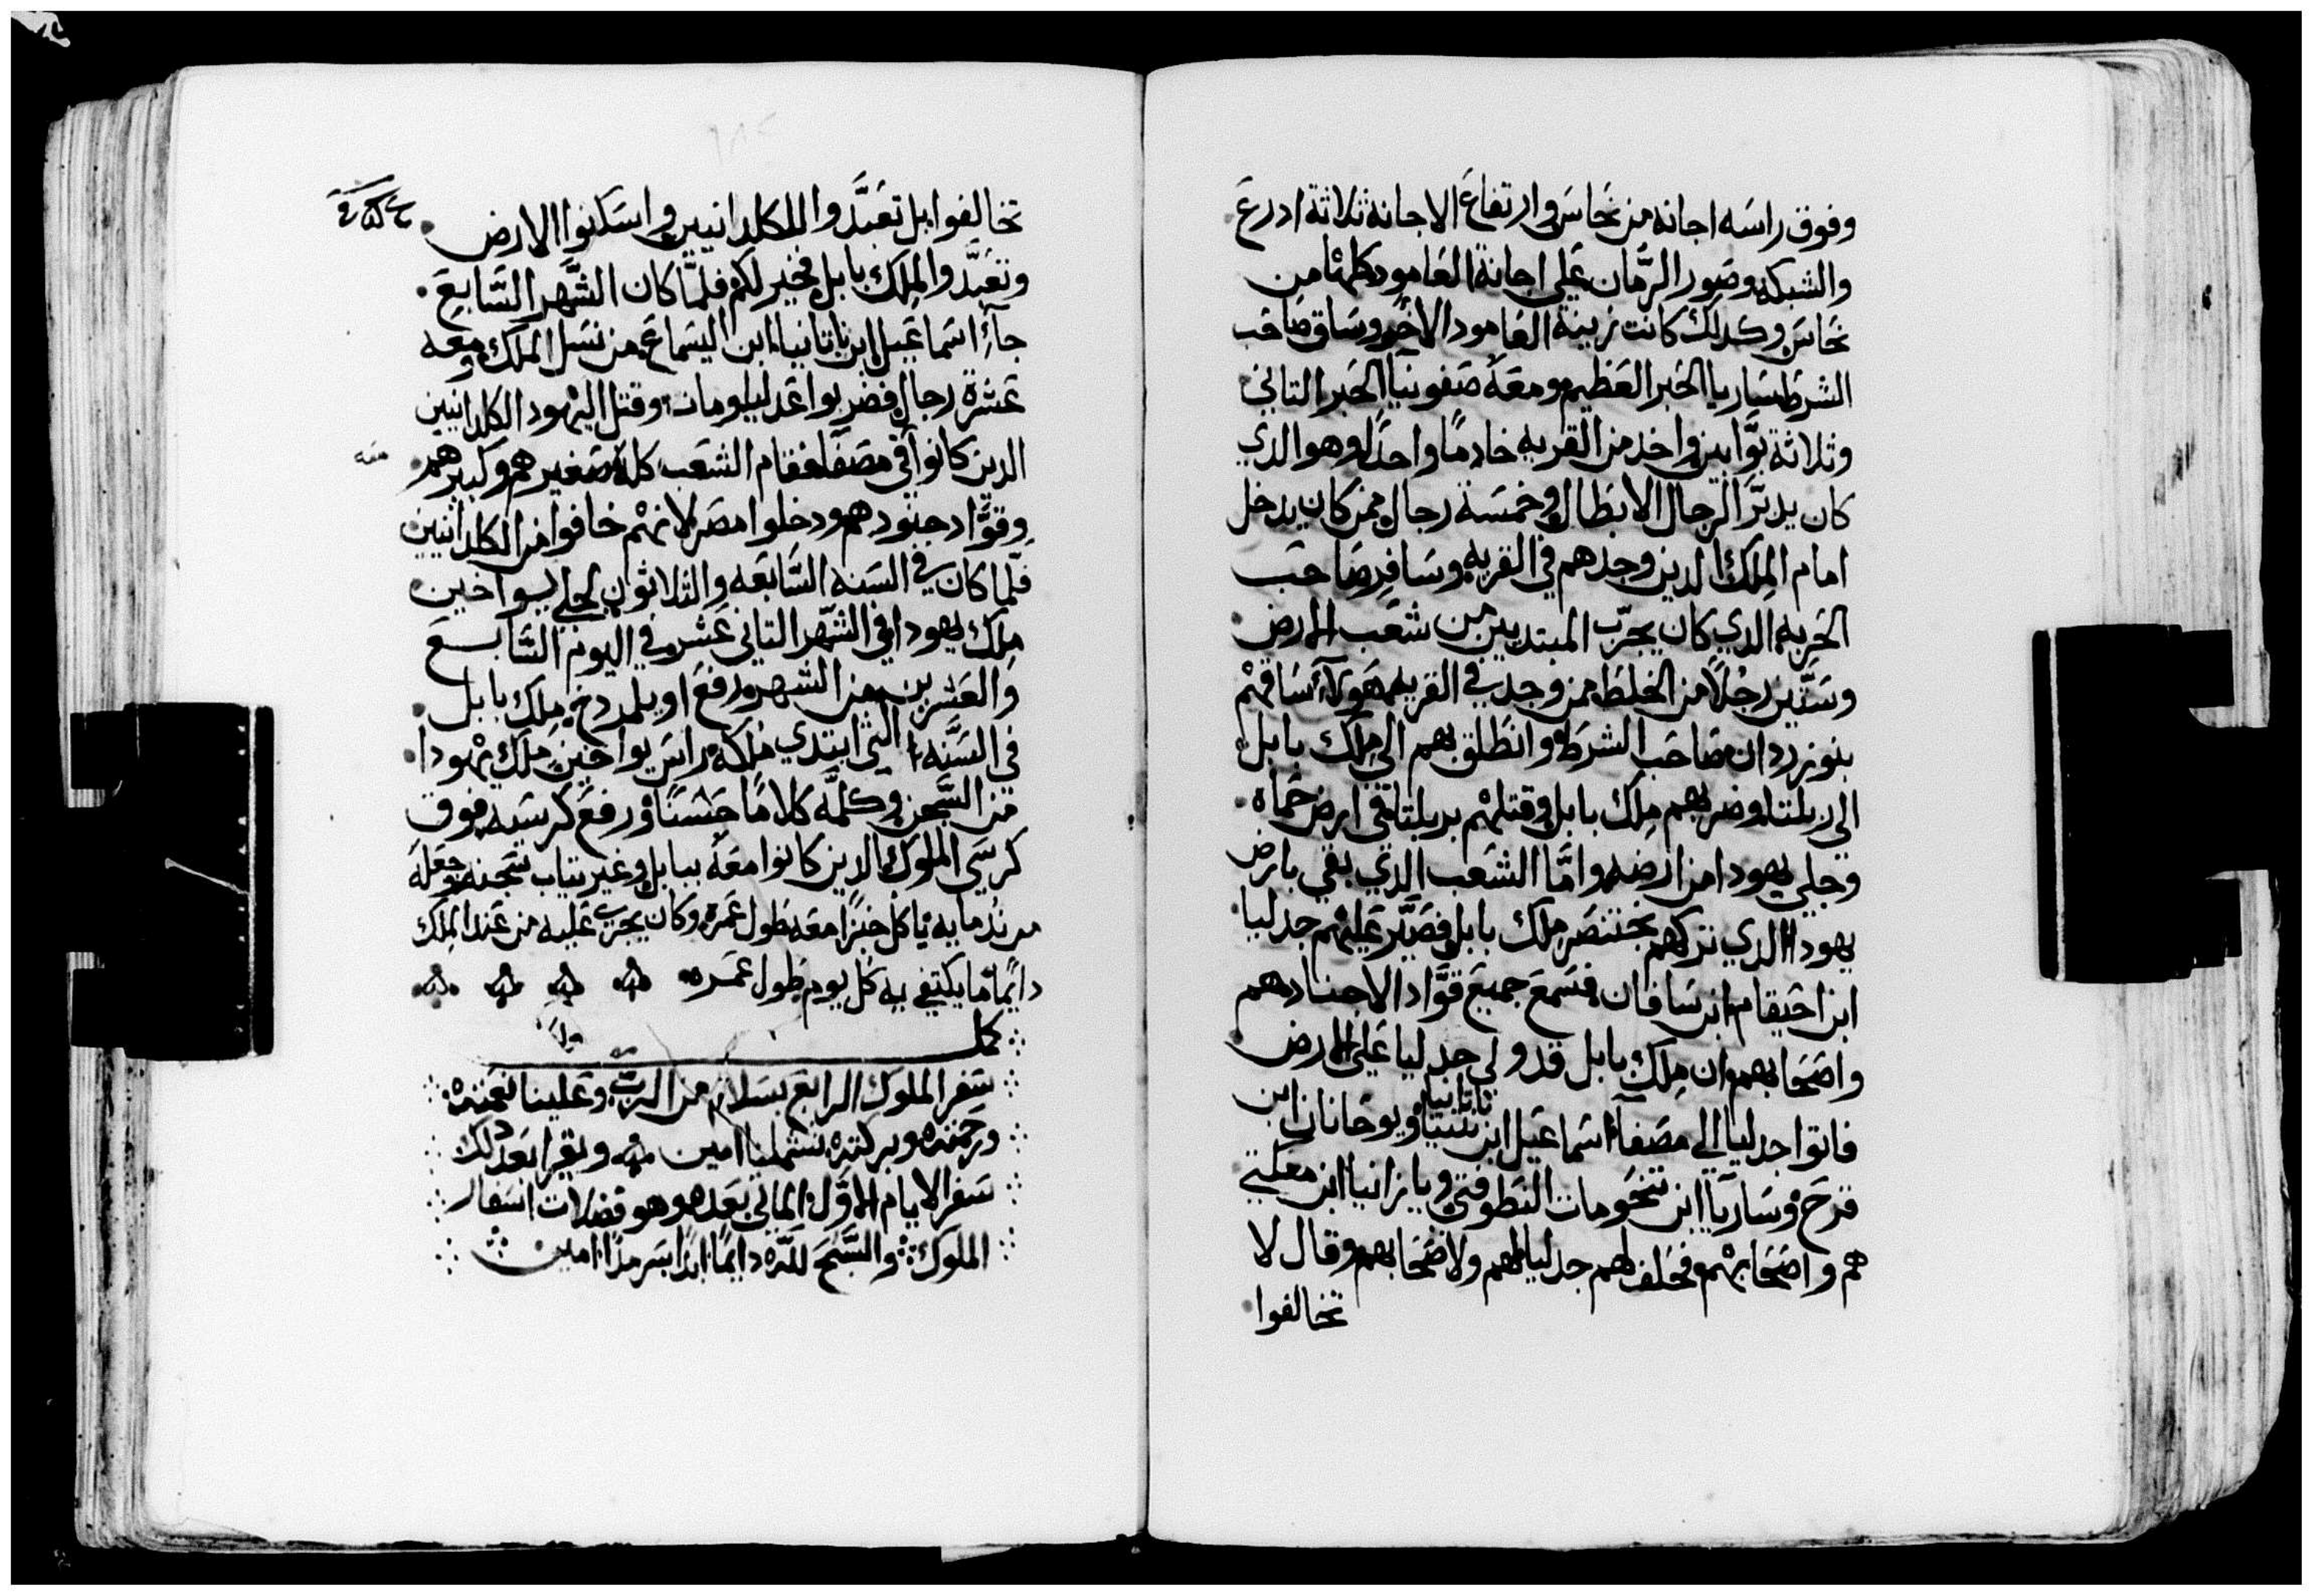 وفوق راسه اجانه من نحاس وارتفاع الاجانة ثلاثة ادرع
والشبكه وصور الرمان علي اجانة العامود كلها من
نحاس وكدلك كانت زينة العامود الاخر وساق صاحب
الشرط ساريا الحبر العظيم ومعه صفونيا الحبر التاني
وثلاثة بوابين واخد من القريه خادمًا واحدًا وهو الدي
كان يدبر الرجال الابطال وخمسة رجال ممن كان يدخل
امام الملك الدين وجدهم في القريه وسافر صاحب
الحربه الدي كان يجرب المبتديين من شعب الارض
وستين رجلاً من الخلط ممن وجد في القريه هولاء ساقهم
بنوزردان صاحب الشرط وانطلق بهم الي ملك بابل
الي ربلتا وضربهم ملك بابل وقتلهم بربلتا في ارض حماه
وجلي يهودا من ارضه واما الشعب الدي بقي بارض
يهودا الدي تركهم بختنصر ملك بابل فصير عليهم جدليا
ابن احيقام ابن سافان فسمع جميع قواد الاجناد هم
واصحابهم ان ملك بابل قد ولي جدليا علي الارض
فاتوا جدليا الي مصفا اسماعيل ابن ناتانيا ويوحانان ابن
قرح وساريا ابن تنحومات النطوفتي ويازانيا ابن معكتي
هم واصحابهم فحلف لهم جدليا لهم ولاصحابهم وقال لا
تخالفوا
تخالفوا بل تعبدوا للكلدانيين واسكنوا الارض
وتعبدوا لملك بابل فخير لكم فلما كان الشهر السابع
جاء اسماعيل ابن ناتانيا ابن اليسماع من نسل الملك ومعه
عشرة رجال فضربوا غدليا ومات وقتل اليهود الكلدانيين
الدين كانوا في مصفا فقام الشعب كله صغيرهم وكبيرهم
وقواد جنودهم ودخلوا مصر لانهم خافوا من الكلدانيين
فلما كان في السنه السابعه والثلاثون لجلي يواخين
ملك يهودا في الشهر التاني عشر وفي اليوم السابع
والعشرين من الشهر رفع اويلمردخ ملك بابل
في السنه التي ابتدي ملكه راس يواخين ملك يهودا
من السجن وكلمه كلامًا حسنًا ورفع كرسيه فوق
كرسي الملوك الدين كانوا معه ببابل وغير تياب سجنه وجعله
من ندمايه ياكل خبزًا معه طول عمره وكان يجري عليه من عند الملك
دايمًا ما يكتفي به كل يوم طول عمره
كمل
سفر الملوك الرابع بسلام من الرب وعلينا نعمته
ورحمته وبركته تشملنا امين ويقرا بعد دلك
سفر الايام الاول التالي بعده وهو فضلات اسفار
الملوك والسبح لله دايمًا ابدًا سرمدًا امين